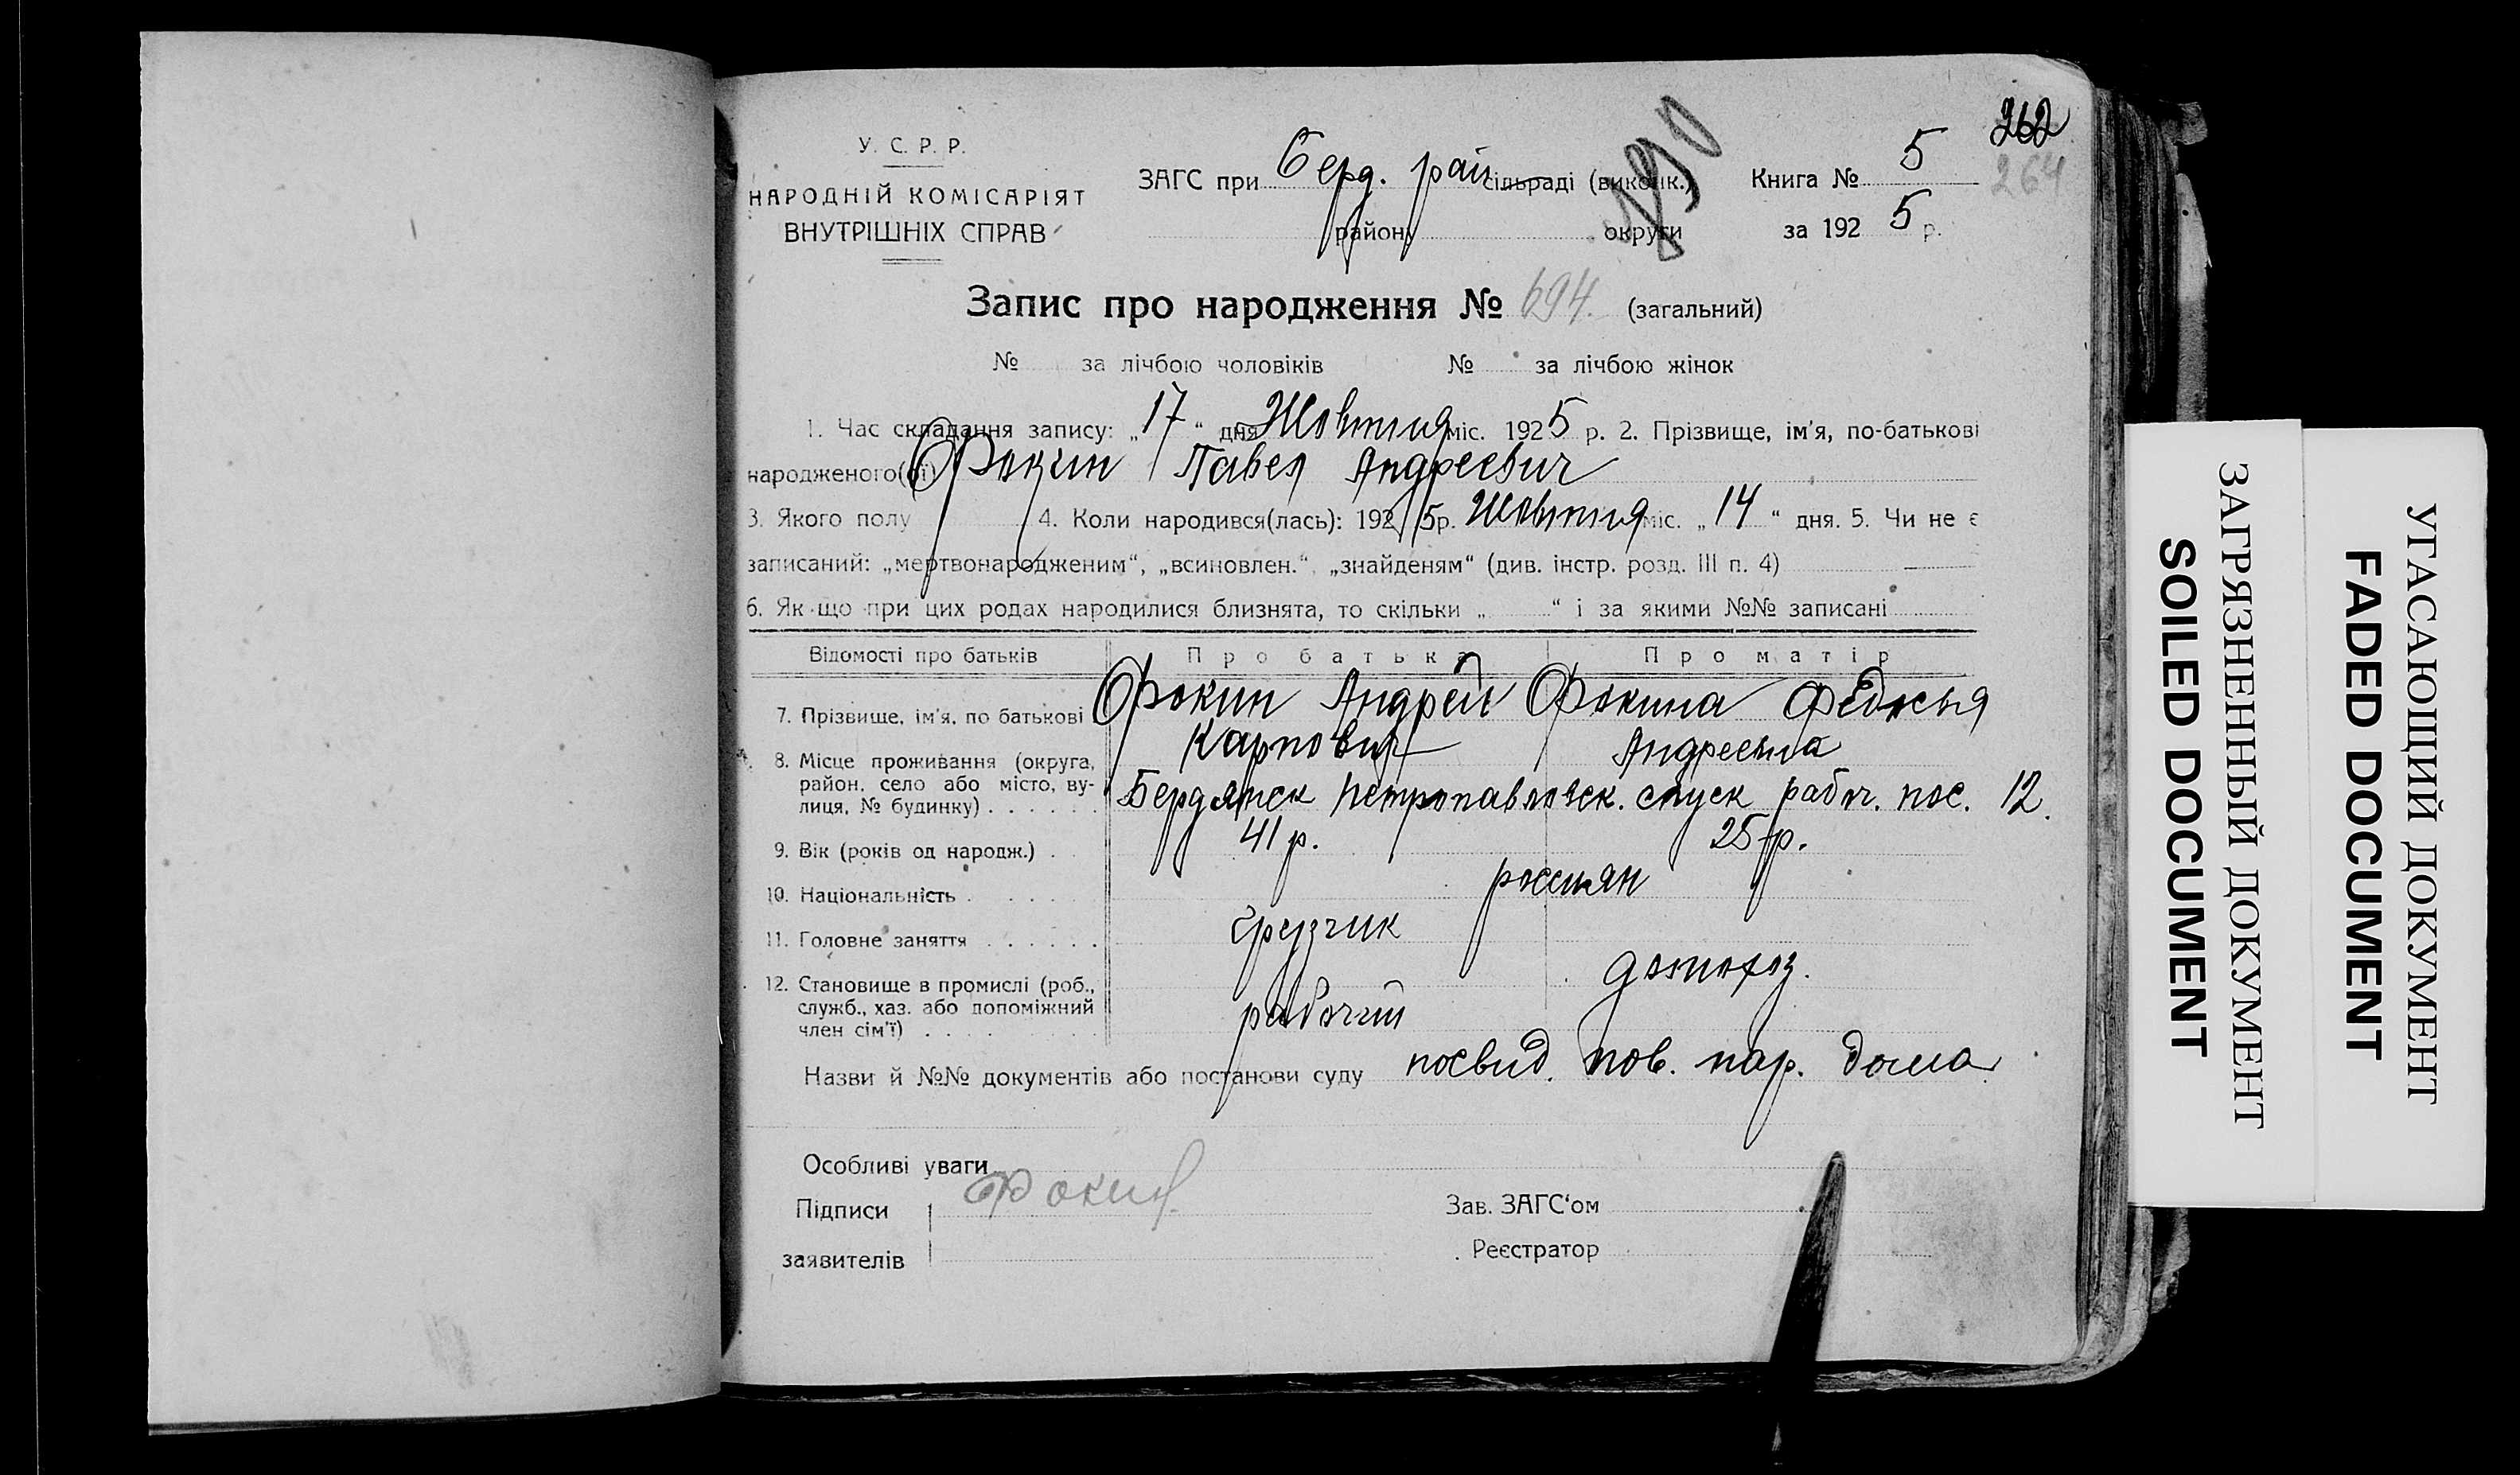 262
264
У. С. Р. Р.
НАРОДНІЙ КОМІСАРІЯТ
ВНУТРІШНІХ СПРАВ
ЗАГС при Берд. рай сільраді (виконк.)
району округи
Книга № 5
за 192 5 р.
Запис про народження № 694. (загальний)
№ за лічбою чоловіків № за лічбою жінок
1. Час складання запису: „17“ дня Жовтня міс. 1925 р. 2. Прізвище, ім'я, по-батькові
народженого(ої) Фокин Павел Андреевич
3. Якого полу 4. Коли народився(лась): 1925р. Жовтня міс. „14“ дня. 5. Чи не є
записаний: „мертвонародженим“, „всиновлен.“, „знайденям“ (див. інстр. розд. III п. 4)
6. Як-що при цих родах народилися близнята, то скільки „ “ і за якими №№ записані
Відомості про батьків Про батька Про матір
7. Прізвище, ім'я, по батькові Фокин Андрей Карпович Фокина Федосья Андреевна
8. Місце проживання (округа,
район, село або місто, ву-
лиця, № будинку) . . . . . . Бердянск Петропавловск. спуск рабоч. пос. 12.
9. Вік (років од народж.) . . 41 р. 25 р.
10. Національність . . . . . россиян
11. Головне заняття . . . . . . грузчик
домохоз.
12. Становище в промислі (роб.,
служб., хаз. або допоміжний
член сім'ї) . . . . рабочий
Назви й №№ документів або постанови суду посвид. пов. пар. дома
Особливі уваги
Підписи Фокин
заявителів
Зав. ЗАГС'ом
Реєстратор
ЗАГРЯЗНЕННЫЙ ДОКУМЕНТ
SOILED DOCUMENT
УГАСАЮЩИЙ ДОКУМЕНТ
FADED DOCUMENT